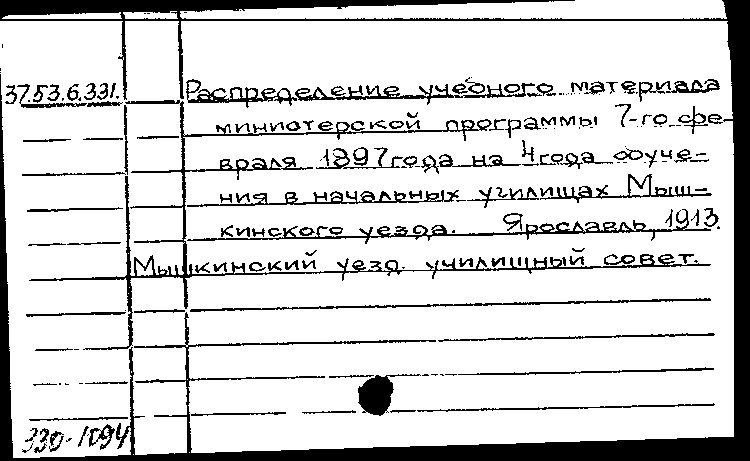 37.53.6.331. Распределение учебного материала
министерской программы 7-го фе-
враля 1897 года на 4 года обуче-
ния в начальных училищах Мыш-
кинского уезда. Ярославль, 1913.
Мышкинский уезд. училищный совет.
330-1094